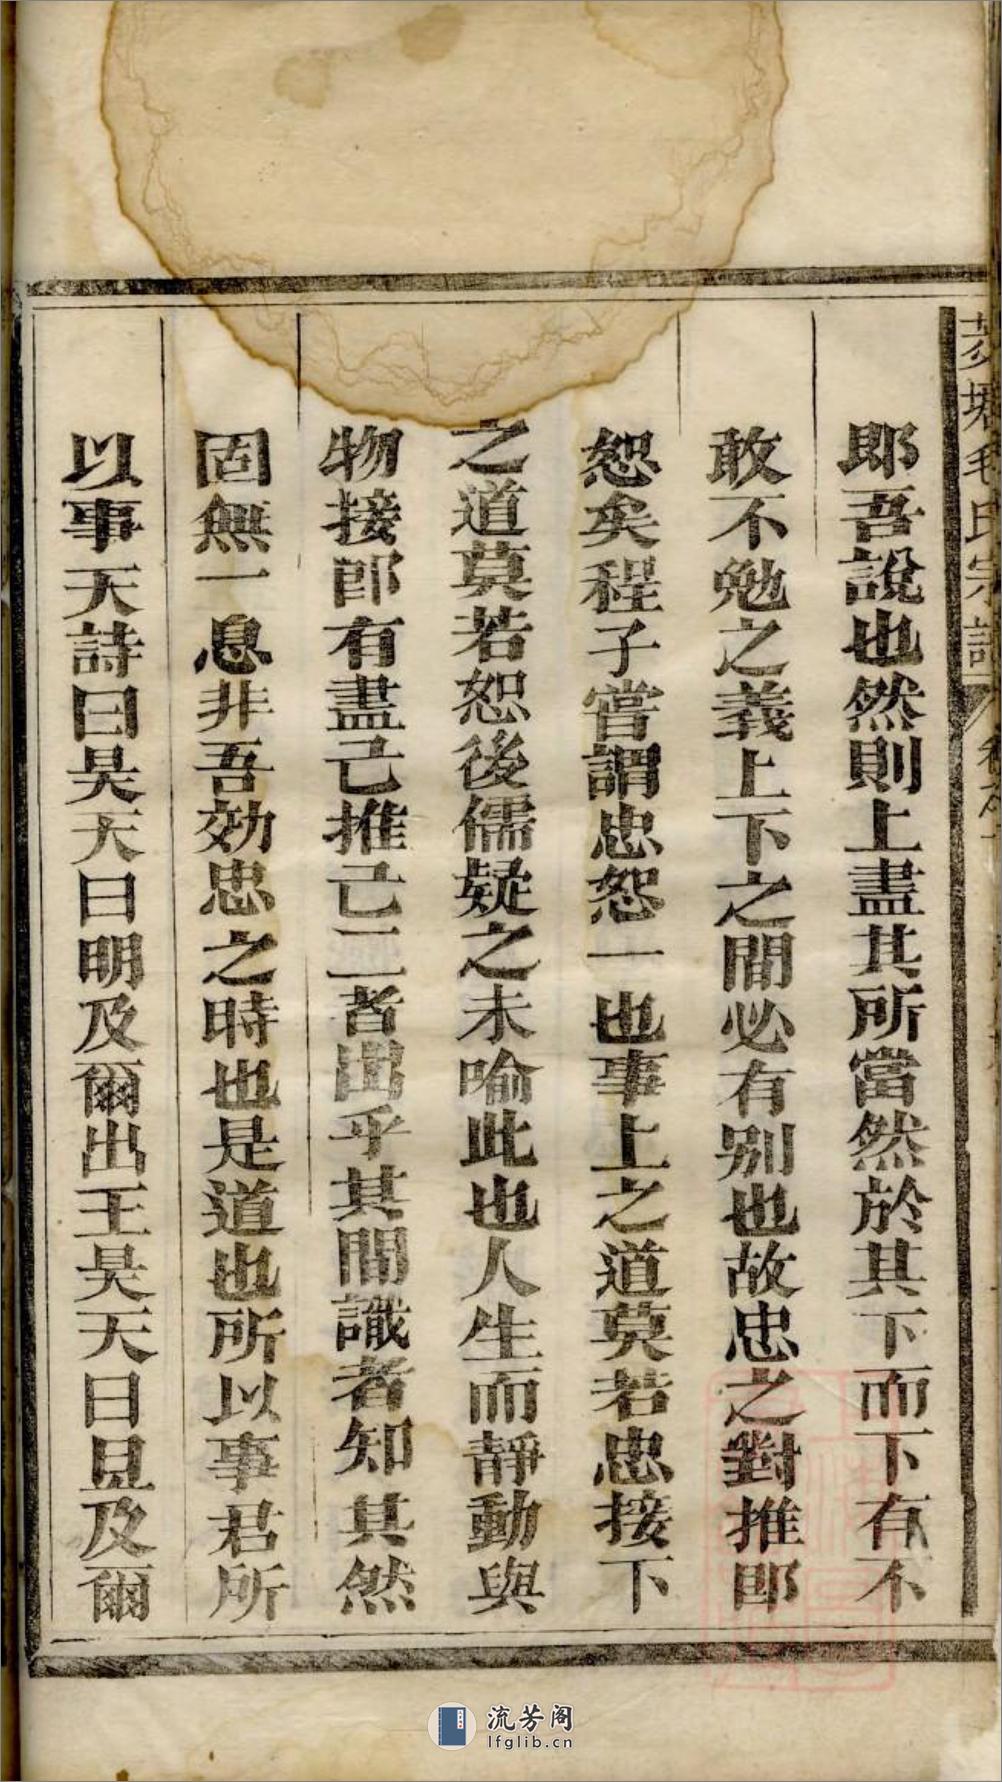 毛氏宗譜
即吾說也然則上盡其所當然於其下而下有不
敢不勉之義上下之間必有別也故忠之對推即
恕矣程子嘗謂忠恕一也事上之道莫若忠接下
之道莫若恕後儒疑之未喻此也人生而靜動與
物接即有盡己推己二者出乎其間識者知其然
固無一息非吾効忠之時也是道也所以事君所
以事天詩曰昊天曰明及爾出王昊天曰旦及爾
流芳阁
lfglib.cn